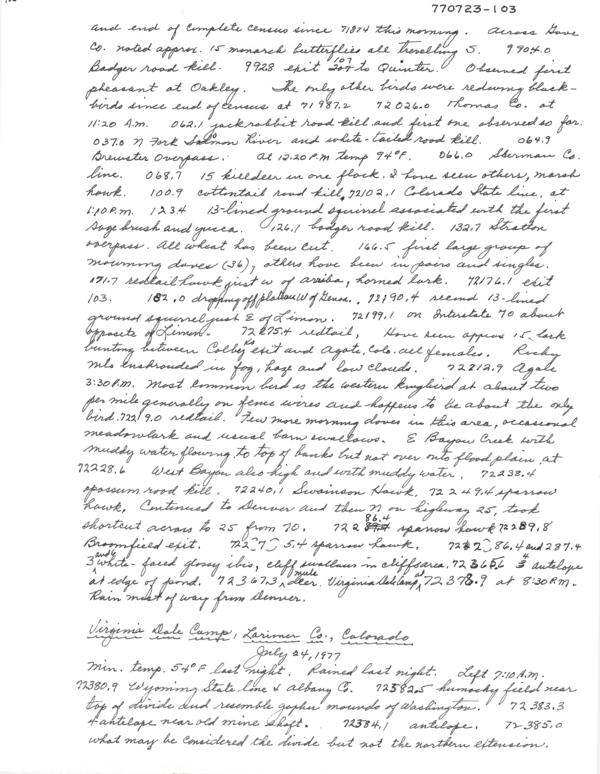 770723-103
and end of complete census since 71874 this morning. Across Gove
Co. noted approx. 15 monarch butterflies all travelling S. 9904.0
Badger road kill. 9928 exit 107 to Quinter. Observed first
pheasant at Oakley. The only other birds were redwing black-
birds since end of census at 71987.2 72026.0 Thomas Co. at
11:20 A.M. 062.1 jackrabbit road kill and first one observed so far.
037.0 N Fork Solomon River and white-tailed road kill. 064.9
Brewster Overpass. At 12:20 P.M temp 94°F. 066.0 Sherman Co.
line. 068.7 15 killdeer in one flock. I have seen others, marsh
hawk. 100.9 cottontail road kill, 72102.1 Colorado State line, at
1:10 P.M. 123.4 13-lined ground squirrel associated with the first
sage brush and yucca. 126.1 badger road kill. 132.7 Stratton
overpass. All wheat has been cut. 166.5 first large group of
mourning doves (36), others have been in pairs and singles.
171.7 redtail hawk just w of Arriba, horned lark. 72176.1 exit
103. 182.0 dropping off plateau W of Genoa. 72190.4 second 13-lined
ground squirrel just E of Limon. 72199.1 on Interstate 70 about
opposite of Limon. 72275.4 redtail, Have seen approx 15 lark
bunting between Colby Ks exit and Agate, Colo. all females. Rocky
Mts enshrouded in fog, haze and low clouds. 72212.9 Agate
3:30 P.M. Most common bird is the western kingbird at about two
per mile generally on fence wires and happens to be about the only
bird. 72219.0 redtail. Few more morning doves in this area, occasional
meadowlark and usual barn swallows. E Bayou Creek with
muddy water flowing to top of banks but not over onto flood plain at
72228.6 West Bayou also high and with muddy water. 72238.4
opossum road kill. 72240.1 Swainson Hawk, 72249.4 sparrow
hawk, Continued to Denver and then N on highway 25, took
shortcut across to 25 from 70. 72286.4 sparrow hawk 72289.8
Broomfield exit. 5.4 sparrow hawk. 86.4 and 287.4
3 and 6 white-faced glossy ibis, cliff swallows in cliffs area, 72365.6 antelope
at edge of pond. 72367.3 mule deer. Virginia Dale Camp at 72378.9 at 8:30 P.M.
Rain most of way from Denver.
Virginia Dale Camp, Larimer Co., Colorado
July 24, 1977
Min. temp. 54°F last night. Rained last night. Left 7:10 A.M.
72380.9 Wyoming State line & Albany Co. 72382.5 humocky field near
top of divide and resemble gopher mounds of Washington. 72383.3
4 antelope near old mine shaft. 72384.1 antelope. 72385.0
what may be considered the divide but not the northern extension.